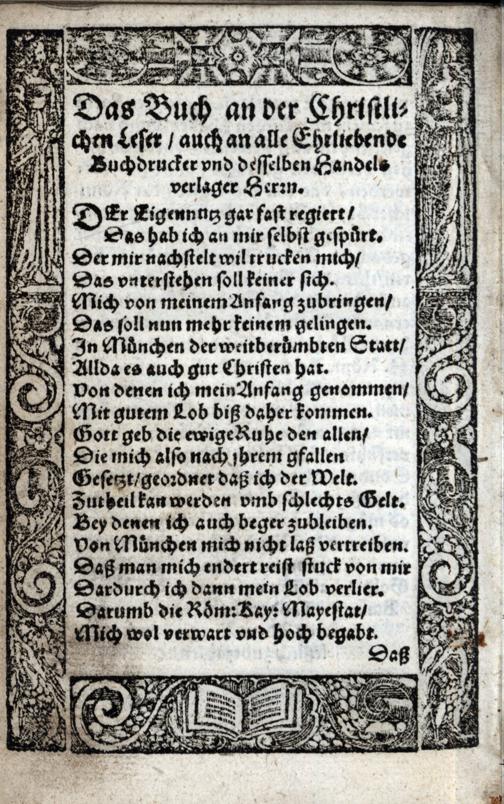 Das Buch an der Christli-
chen Leser / auch an alle Ehrliebende
Buchdrucker vnd desselben Handels
verlager Herrn.
DEr Eigennutz gar fast regiert /
Das hab ich an mir selbst gespürt.
Der mir nachstelt wil trucken mich /
Das vnterstehen soll keiner sich.
Mich von meinem Anfang zubringen /
Das soll nun mehr keinem gelingen.
In München der weitberümbten Statt /
Allda es auch gut Christen hat.
Von denen ich mein Anfang genommen /
Mit gutem Lob biß daher kommen.
Gott geb die ewige Ruhe den allen /
Die mich also nach jhrem gfallen
Gesetzt / geordnet daß ich der Welt.
Zutheil kan werden vmb schlechts Gelt.
Bey denen ich auch beger zubleiben.
Von München mich nicht laß vertreiben.
Daß man mich endert reist stuck von mir
Dardurch ich dann mein Lob verlier.
Darumb die Röm: Kay: Mayestat /
Mich wol verwart vnd hoch begabt.
Daß